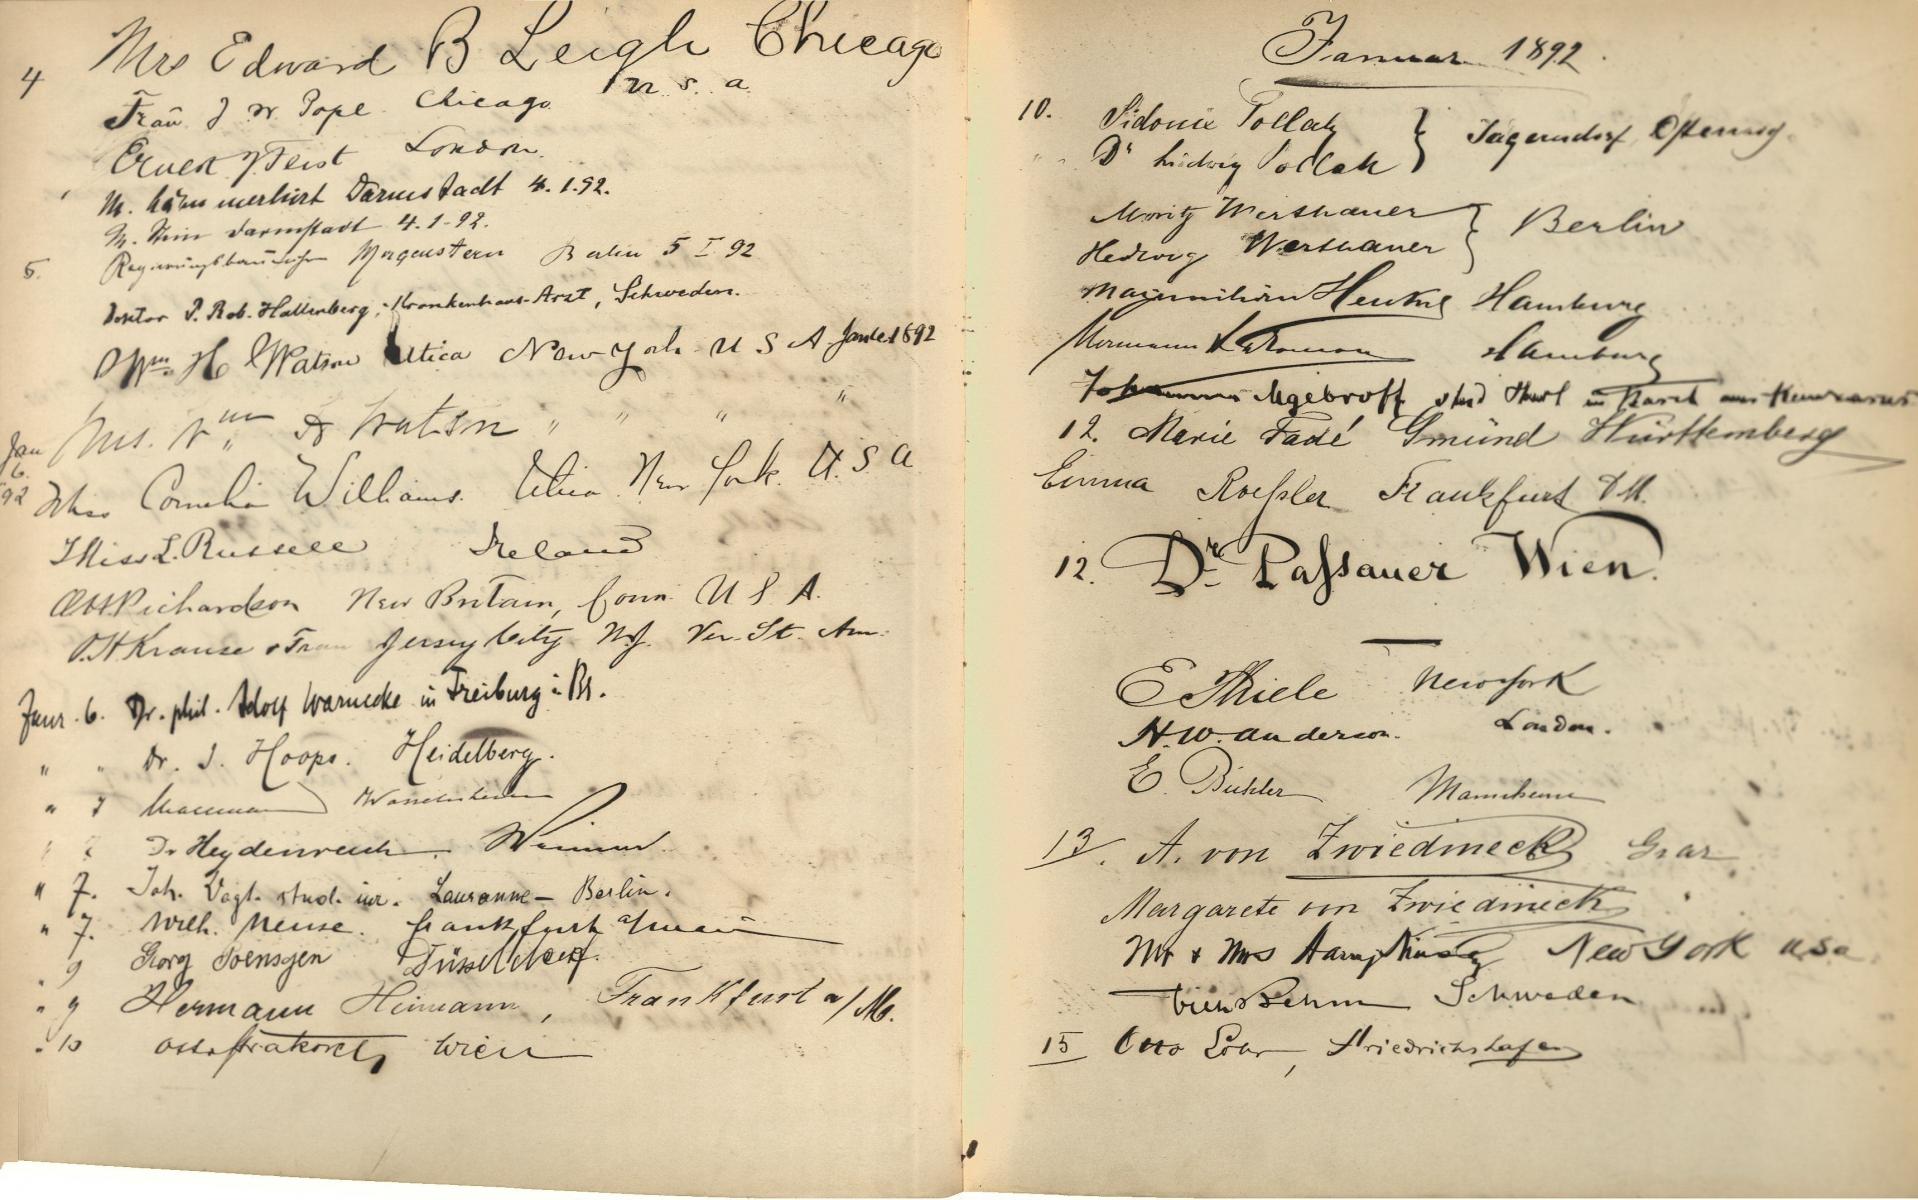 Mrs Edward B Leigh Chicago
U. S. a
4
Frau J W Pope Chicago
Ernest J Feist London.
M. Hämmerlurt Darmstadt 4.1.92.
Darmstadt 4-1-92.
5. Morgenstern Berlin 5 I 92
Doktor P. Rob. Hallenberg, Krankenhaus-Arzt, Schweden.
Wm H Watson Utica New York U S A 1892
Mrs. Wm H Watson " " " "
Jan 6. 92 Miss Cornelia Williams. Utica New York. U. S A
Miss L. Russell Ireland
Richardson New Britain, Conn. U S A.
O. H Krause & Frau Jersey City N.J. Ver. St. Am.
Janr. 6. Dr. phil. Adolf Warnecke in Freiburg i. Br.
" " Dr. J. Hoops. Heidelberg.
" 7
Dr Heydenreich. Weimar.
" 7. Joh. Vogt. stud. iur. Lausanne – Berlin.
" 7. Wilh. Neuse. Frankfurt a/Main
" 9 Georg Poensgen Düsseldorf.
" 9 Hermann Heimann, Frankfurt a/M.
" 10 Wien
Januar 1892.
10. Sidonie Pollak
" " Dr Ludwig Pollak } Jägerndorf,
Moritz Werthauer
Hedwig Werthauer } Berlin
Maximilian Henkel Hamburg
Hermann Hamburg
stud
12. Marie Fadé Gmünd Württemberg
Emma Roeßler Frankfurt a M.
12. Dr. Paßauer Wien.
E Thiele New York
H. W. Anderson. London.
E. Bühler Mannheim
13. A. von Zwiedineck Graz
Margarete von Zwiedineck
Mr & Mrs New York U S a
Behm Schweden
15 Otto Lohr, Friedrichshafen